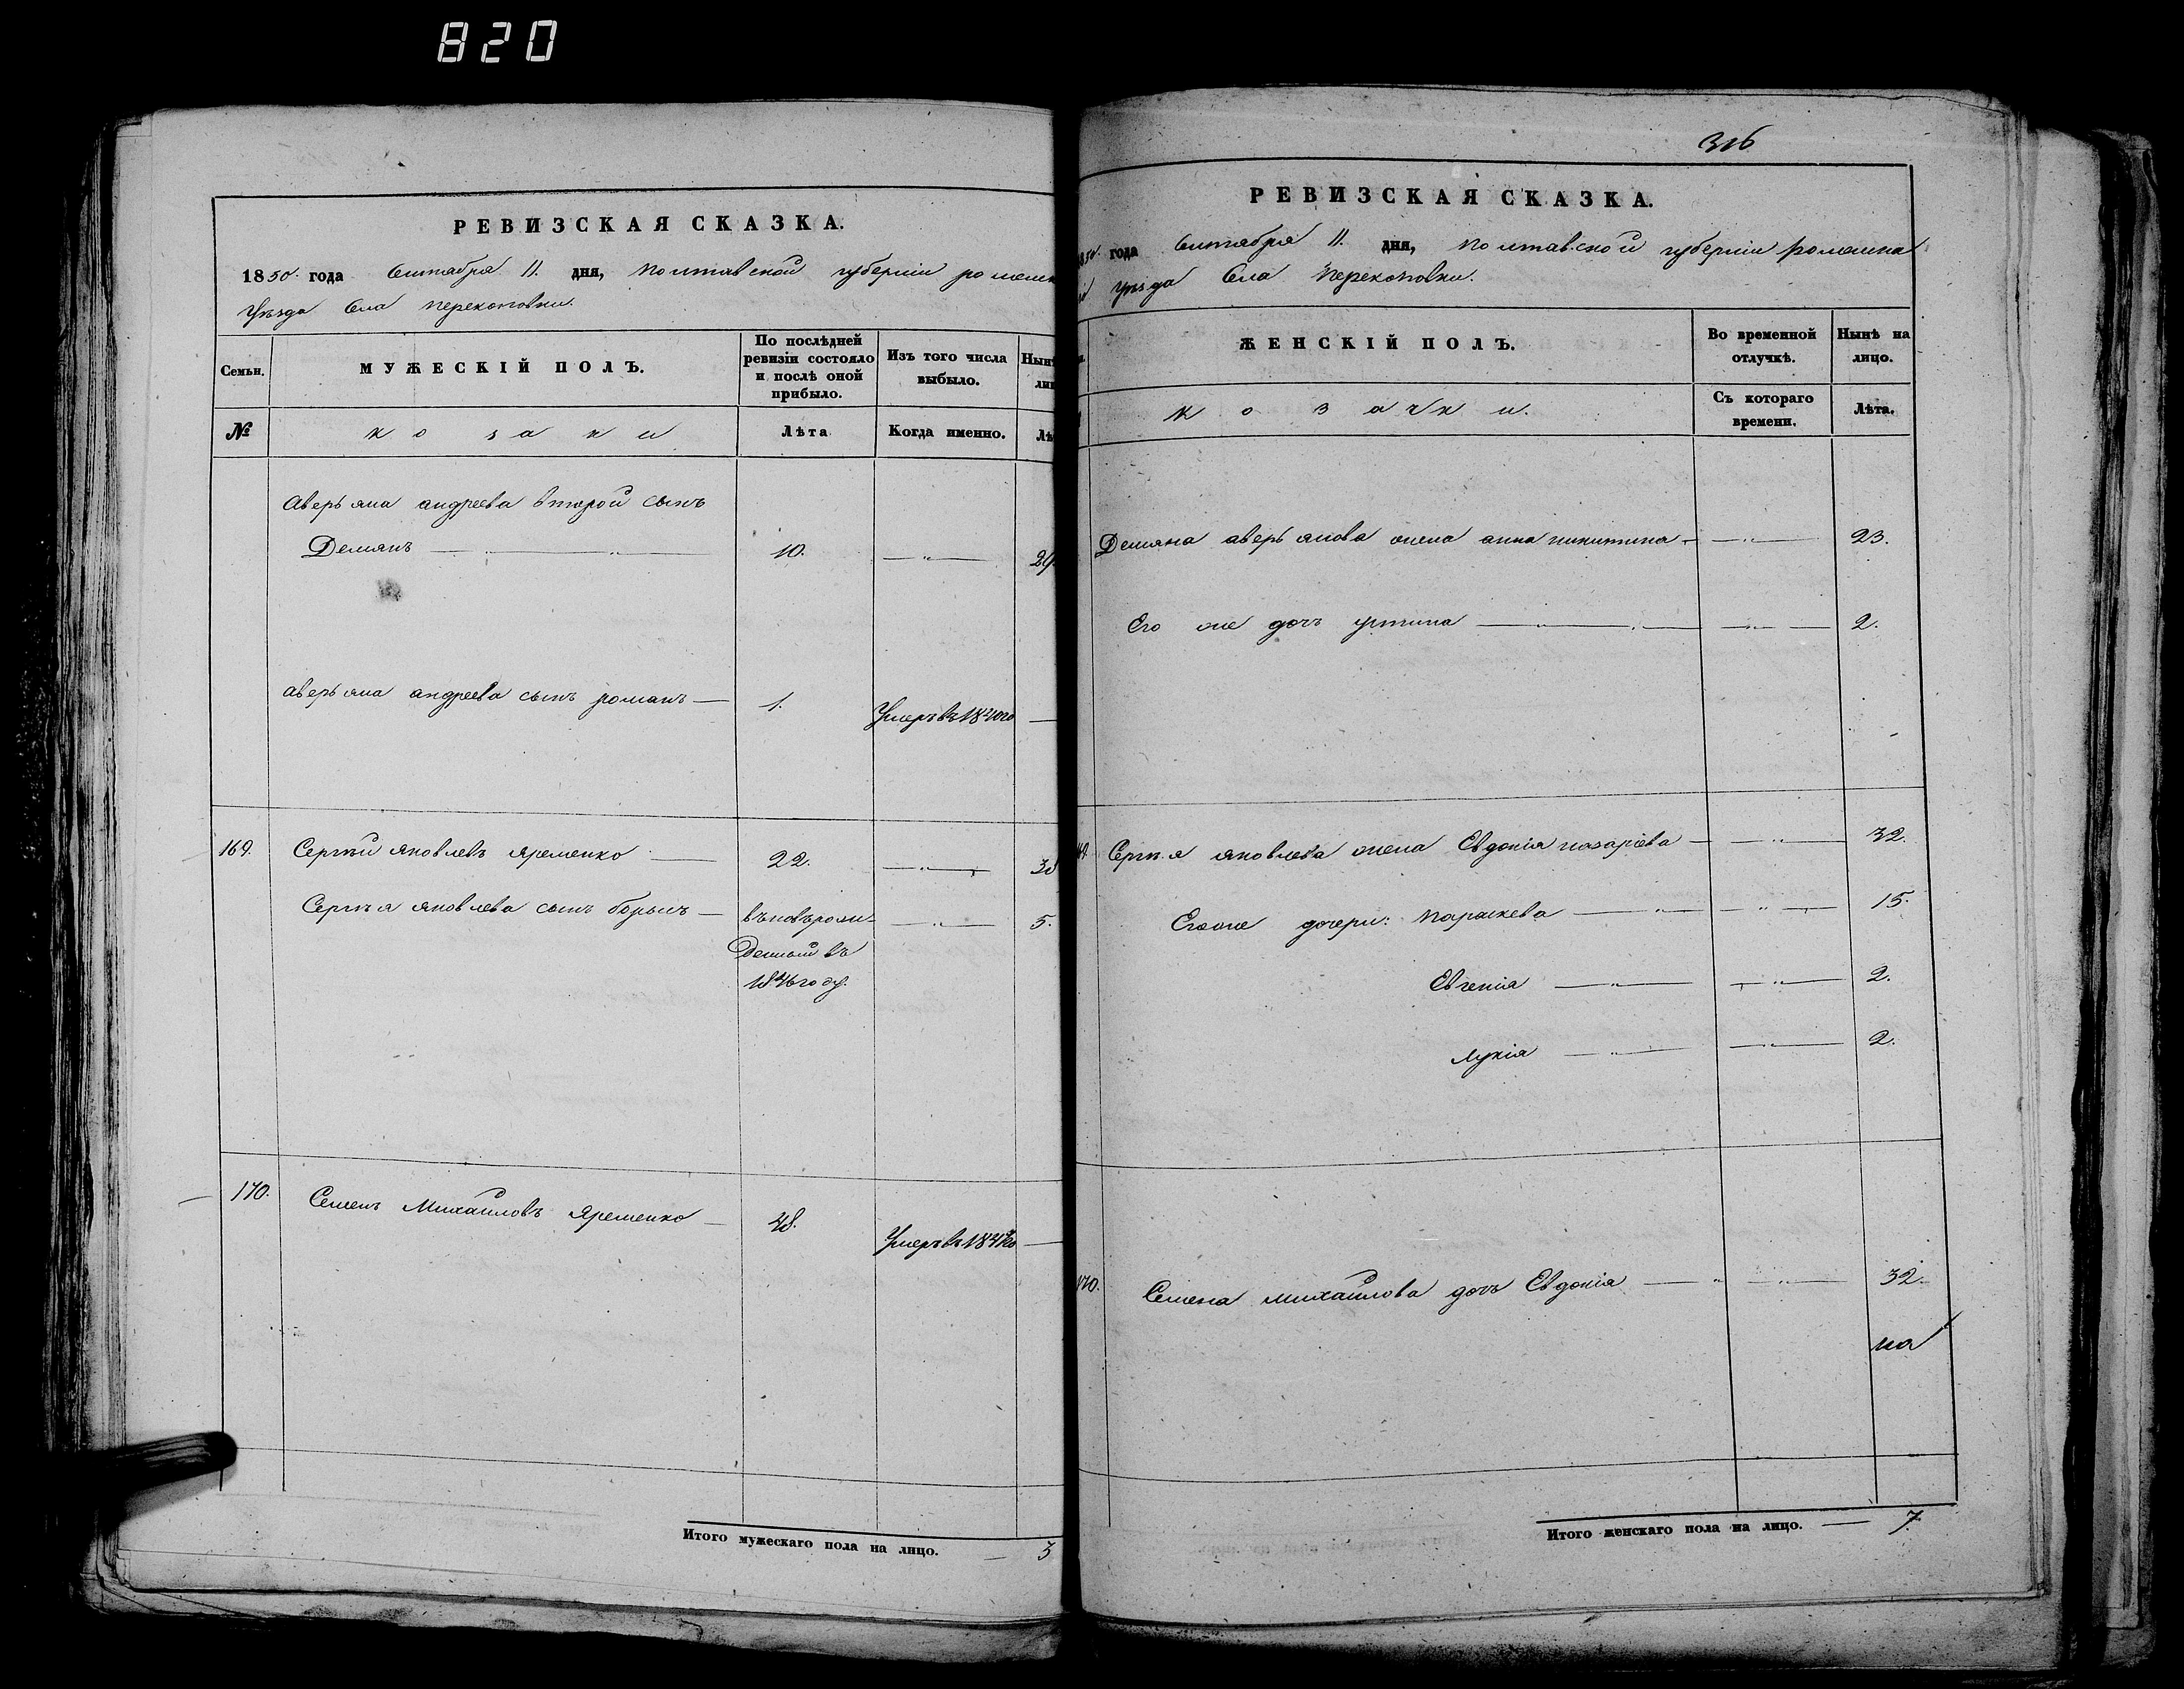 820
РЕВИЗСКАЯ СКАЗКА.
1850. года Октября 11. дня, Полтавской губерніи роменск
Уѣзда Села Перекоповки.
Семьи.
МУЖЕСКІЙ ПОЛЪ.
По послѣдней ревизіи состояло и послѣ оной прибыло.
Изъ того числа выбыло.
Нынѣ
№
козаки
Лѣта
Когда именно.
Лѣ
Аверьяна андреева второй сынъ
Демянъ — 10. — 29.
аверьяна андреева сынъ романъ — 1. Умеръ въ 1840го —
169. Сергѣй яковлевъ яременко — 22. — 38
Сергѣя яковлева сынъ борисъ — вѣновърож- — 5.
денный въ
1846году.
170. Семенъ Михайловъ яременко — 48. Умеръ въ 1847го —
Итого мужескаго пола на лицо. — 3
316
РЕВИЗСКАЯ СКАЗКА.
1850. года Октября 11. дня, Полтавской губерніи роменска
уѣзда Села Перекоповки.
ЖЕНСКІЙ ПОЛЪ.
Во временной отлучкѣ.
Нынѣ на лицо.
козачки.
Съ котораго времени.
Лѣта.
Демяна аверьянова жена анна никитина — 23.
Его же дочь устина — 2.
Сергѣя яковлева жена Евдокія назаріева — 32.
Его же дочери: Параскева — 15.
Евгенія — 2.
Лукія — 2.
170. Семена михайлова дочь Евдокія — 32.
на
Итого женскаго пола на лицо. — 7.